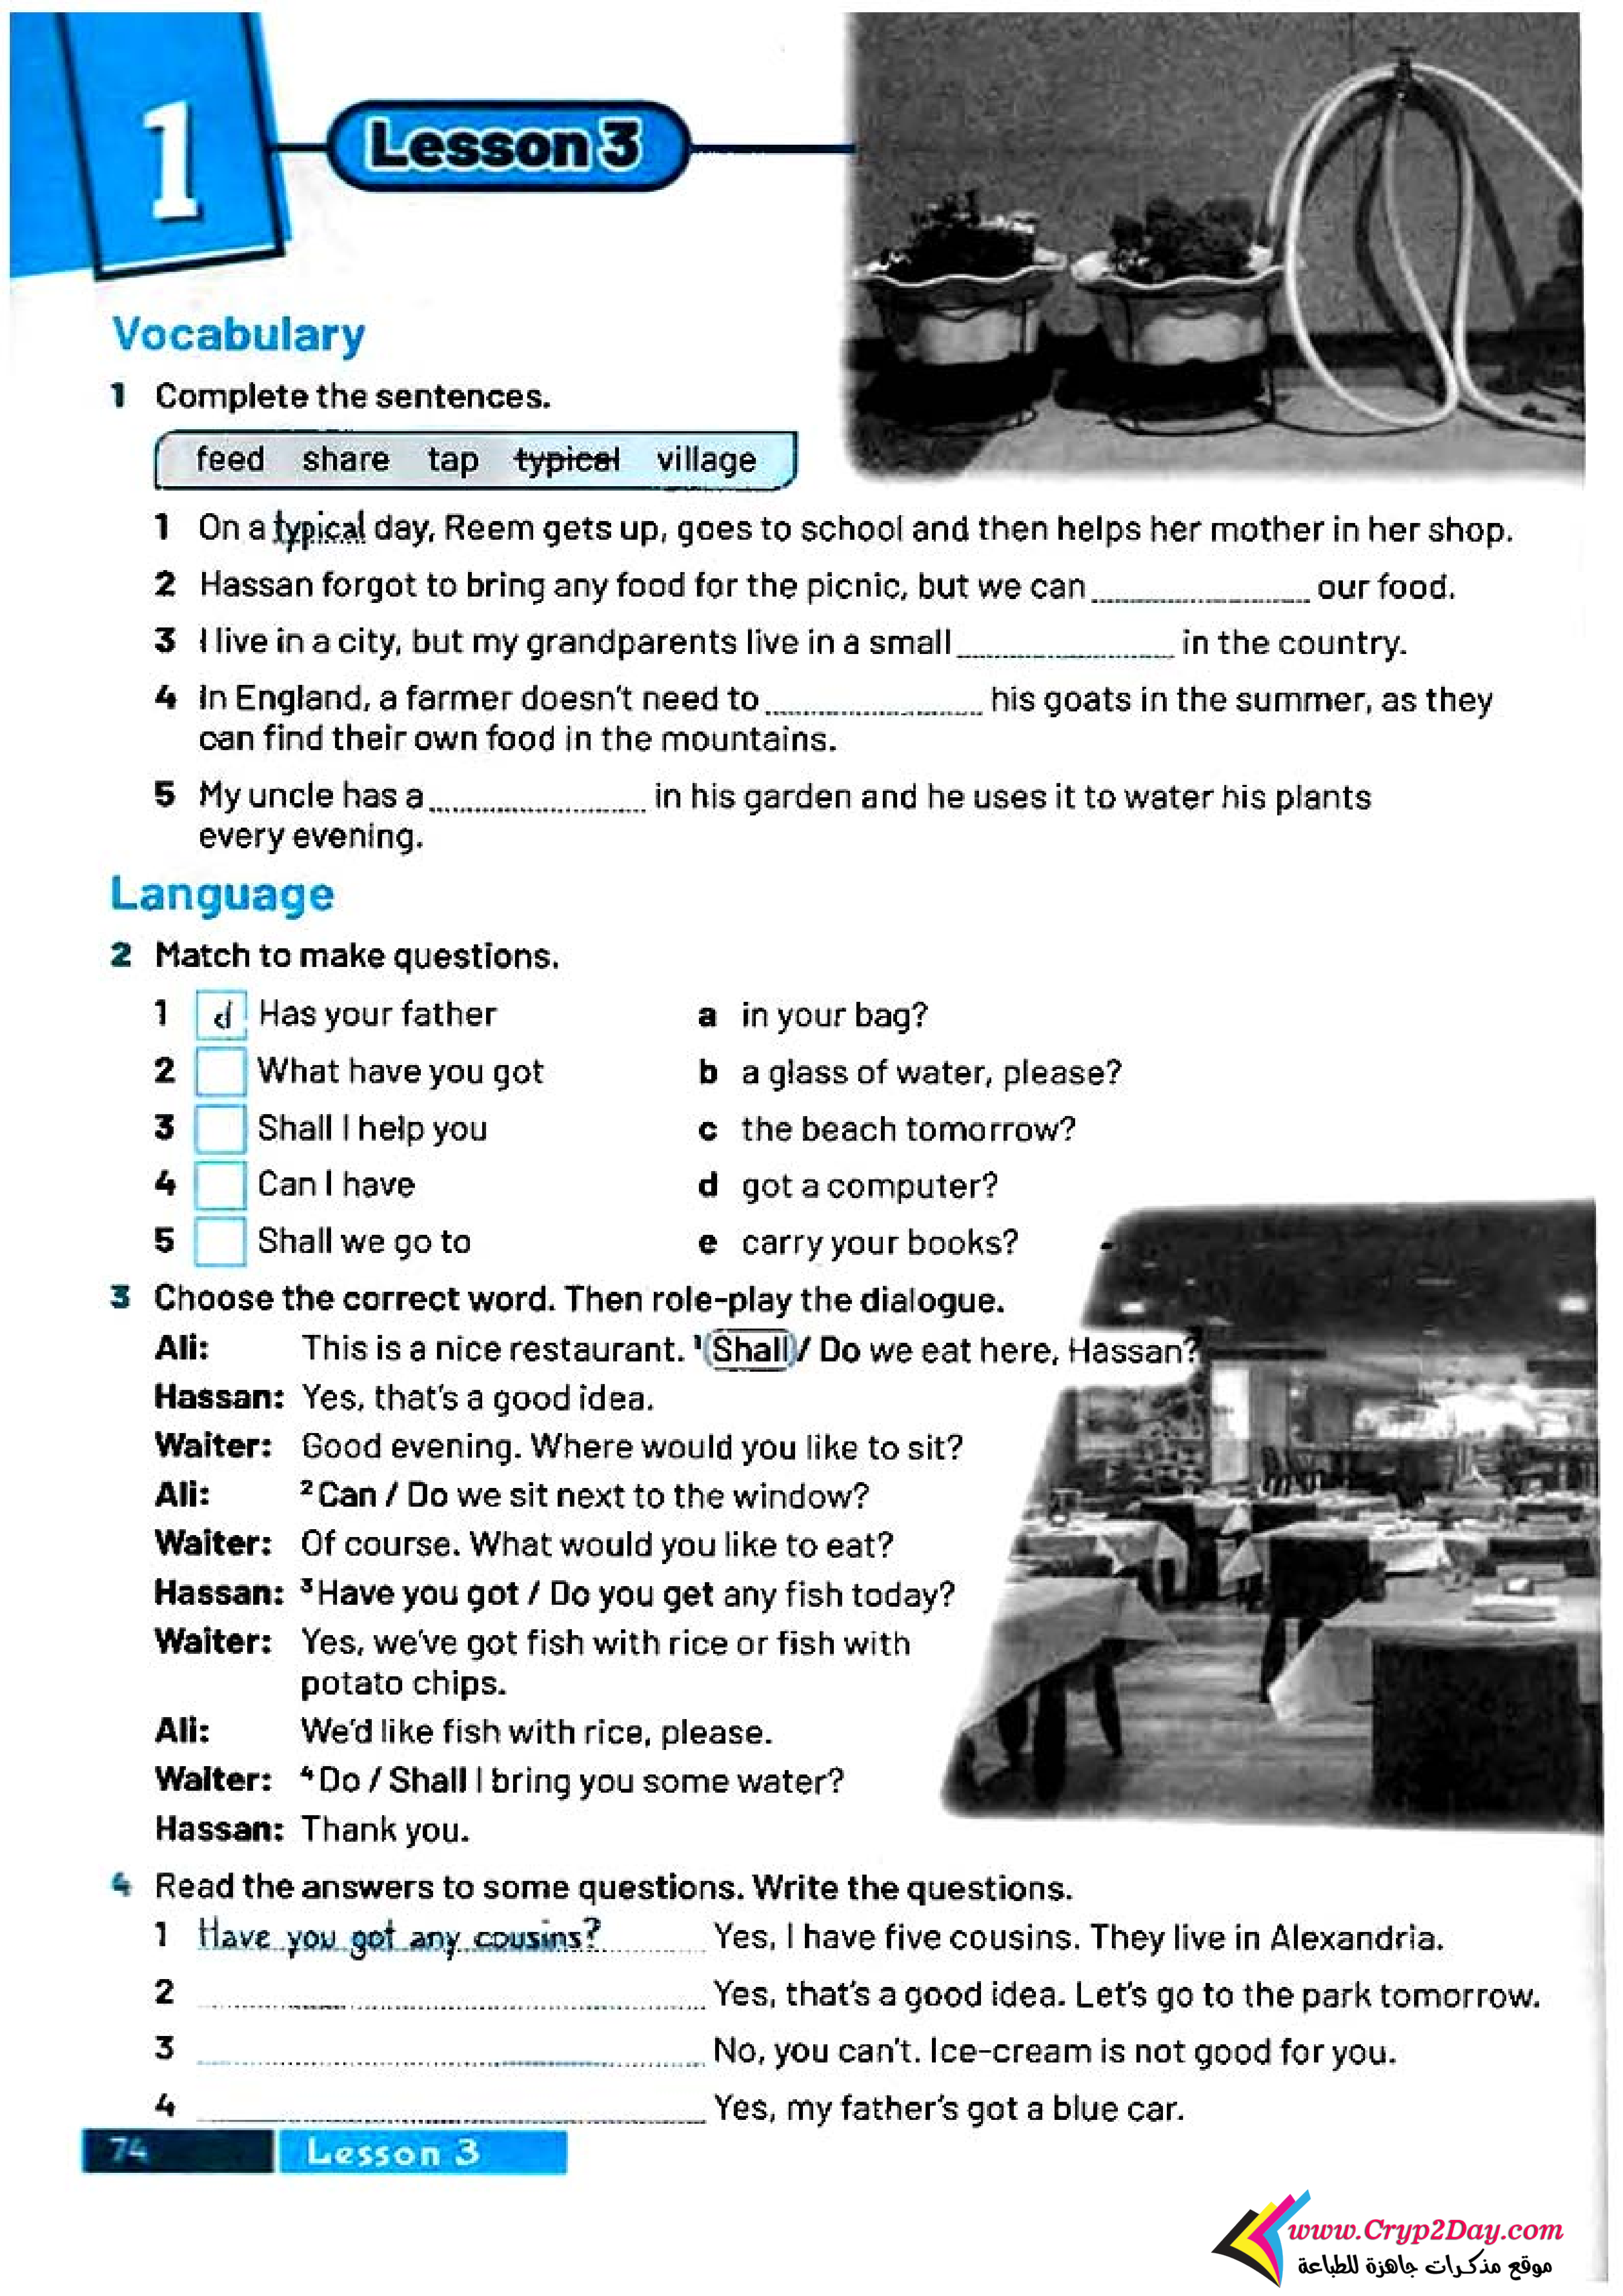 1
Lesson 3
Vocabulary
1 Complete the sentences.
feed share tap typical village
1 On a typical day, Reem gets up, goes to school and then helps her mother in her shop.
2 Hassan forgot to bring any food for the picnic, but we can ............ our food.
3 I live in a city, but my grandparents live in a small ............ in the country.
4 In England, a farmer doesn't need to ............ his goats in the summer, as they
can find their own food in the mountains.
5 My uncle has a ............ in his garden and he uses it to water his plants
every evening.
Language
2 Match to make questions.
1 d Has your father a in your bag?
2 What have you got b a glass of water, please?
3 Shall I help you c the beach tomorrow?
4 Can I have d got a computer?
5 Shall we go to e carry your books?
3 Choose the correct word. Then role-play the dialogue.
Ali: This is a nice restaurant. ¹Shall / Do we eat here, Hassan?
Hassan: Yes, that's a good idea.
Waiter: Good evening. Where would you like to sit?
Ali: ²Can / Do we sit next to the window?
Waiter: Of course. What would you like to eat?
Hassan: ³Have you got / Do you get any fish today?
Waiter: Yes, we've got fish with rice or fish with
potato chips.
Ali: We'd like fish with rice, please.
Waiter: ⁴Do / Shall I bring you some water?
Hassan: Thank you.
4 Read the answers to some questions. Write the questions.
1 Have you got any cousins? Yes, I have five cousins. They live in Alexandria.
2 ............ Yes, that's a good idea. Let's go to the park tomorrow.
3 ............ No, you can't. Ice-cream is not good for you.
4 ............ Yes, my father's got a blue car.
74 Lesson 3
www.Cryp2Day.com
موقع مذكرات جاهزة للطباعة